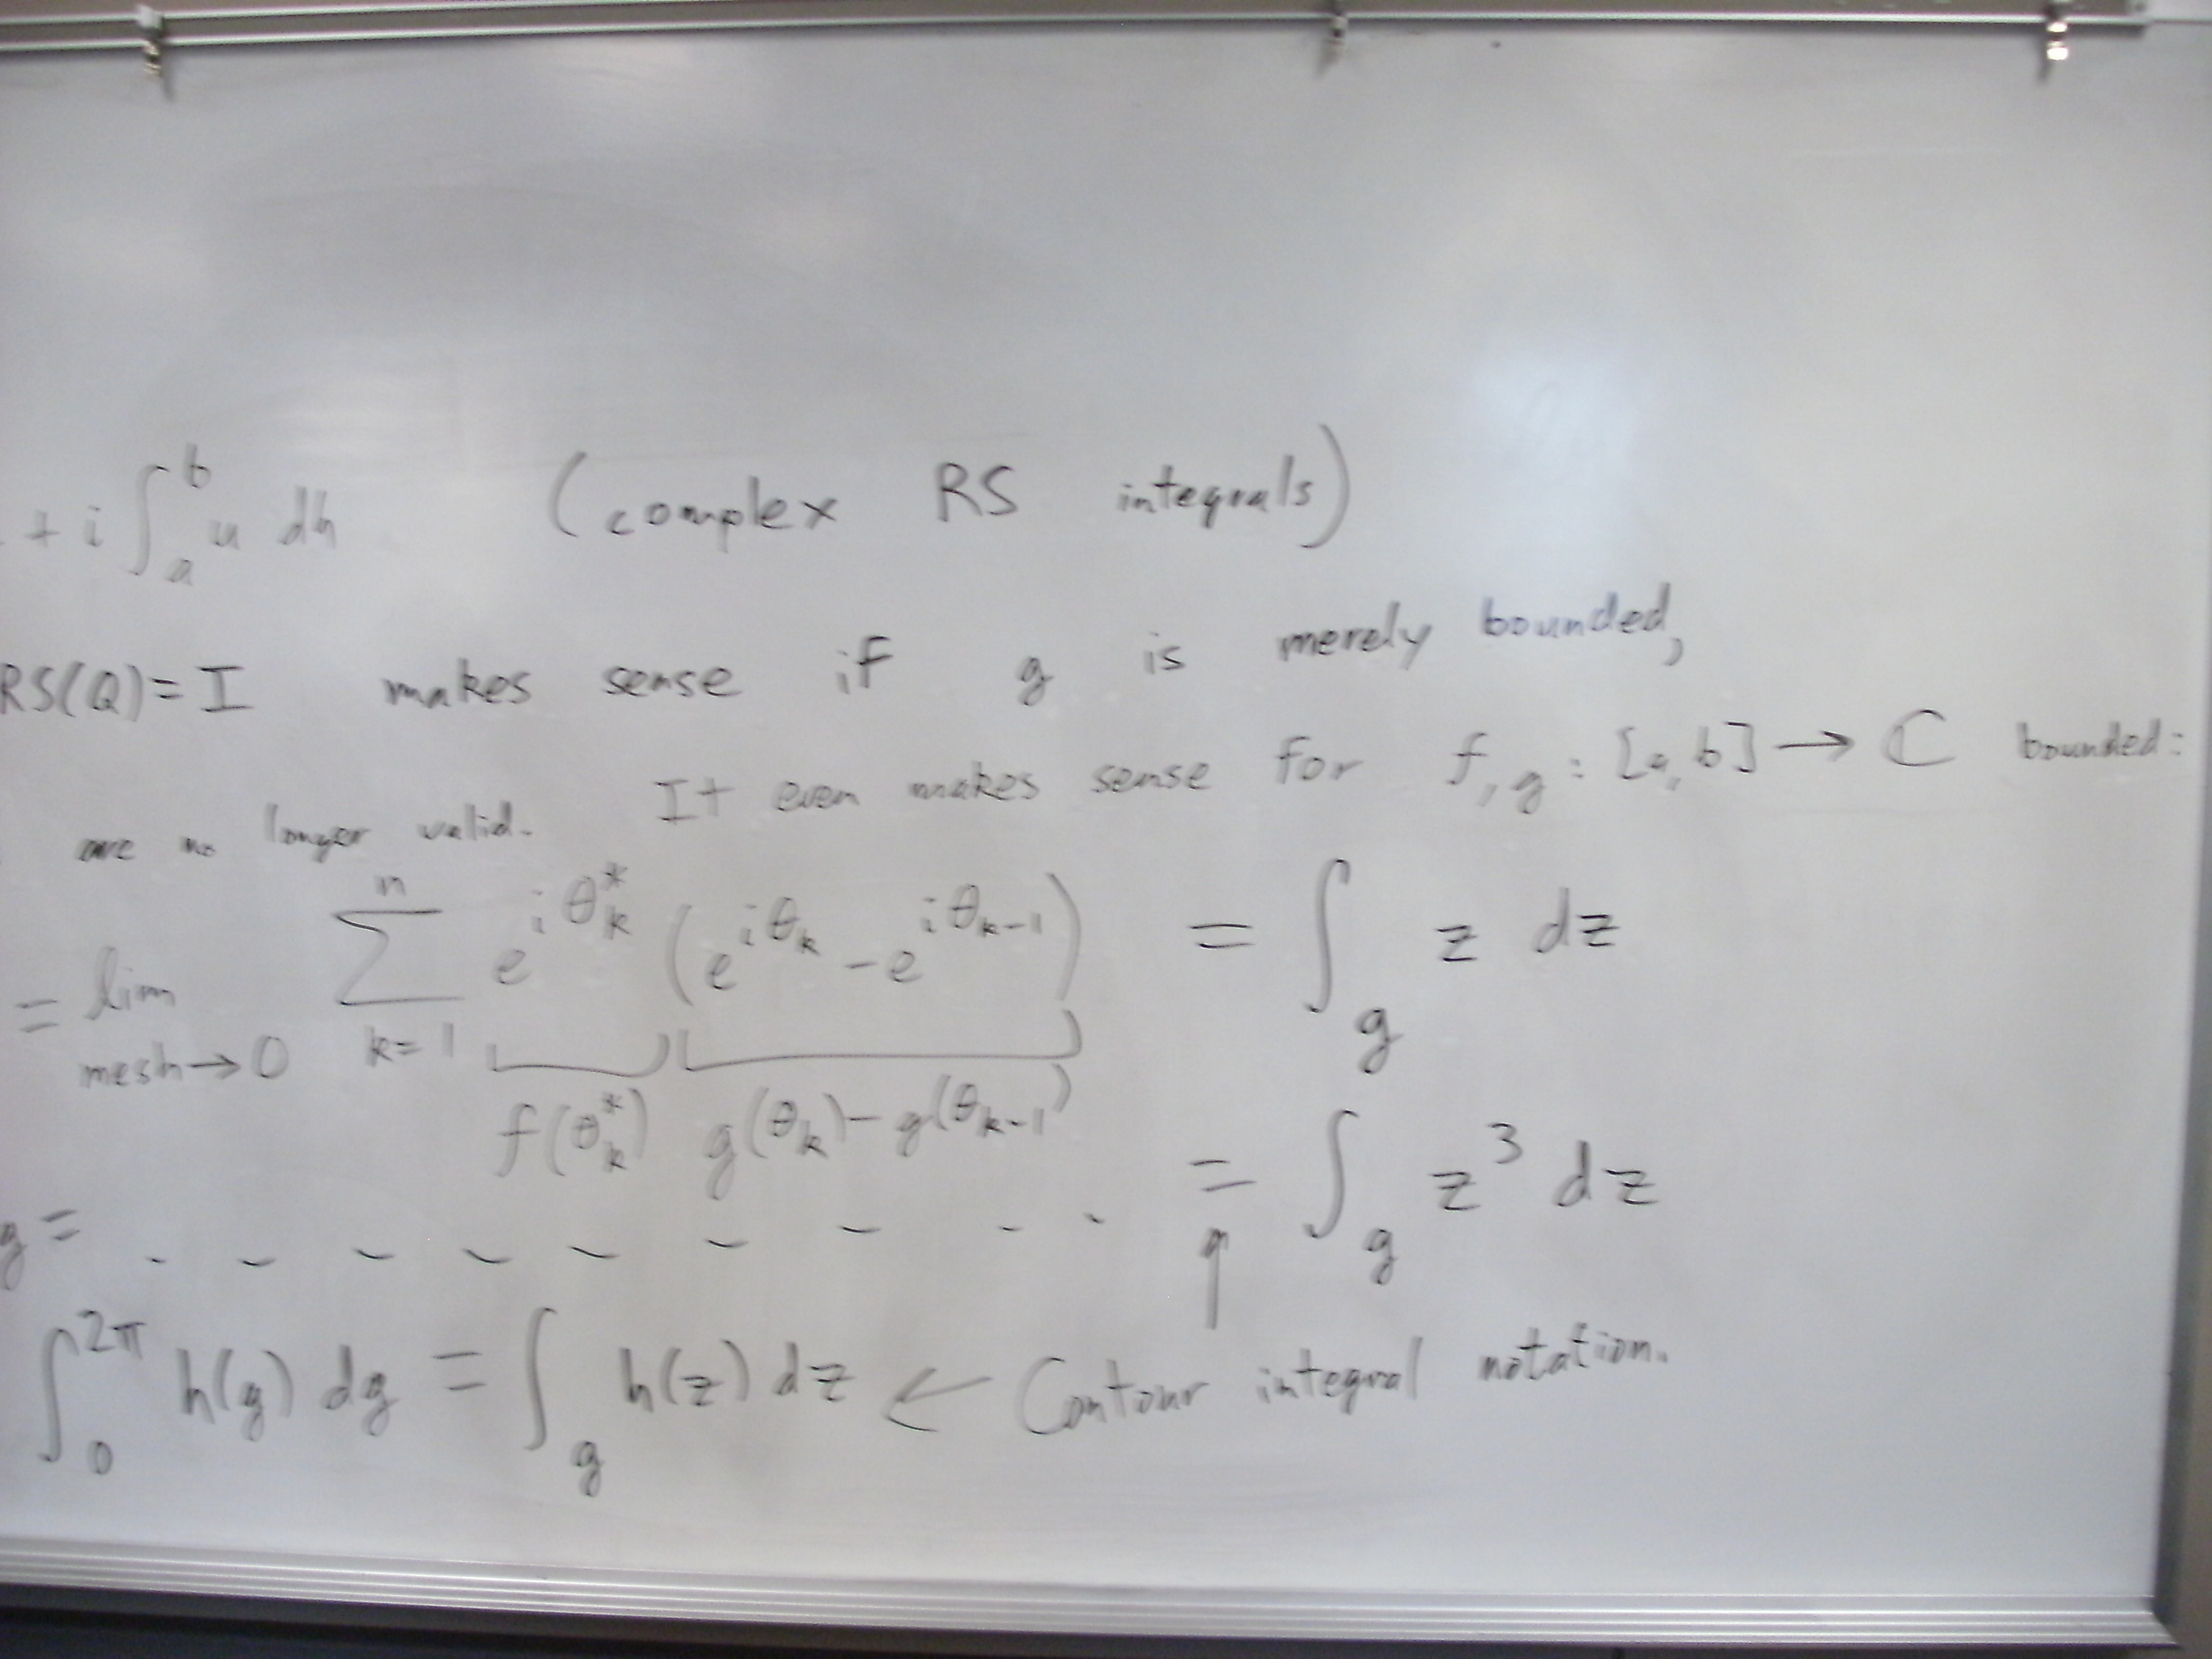 + i ∫_a^b u dh (complex RS integrals)
RS(Q) = I makes sense if g is merely bounded,
are no longer valid. It even makes sense for f, g : [a, b] → ℂ bounded:
= lim_{mesh→0} ∑_{k=1}^n e^{iθ_k^*} (e^{iθ_k} - e^{iθ_{k-1}}) = ∫_g z dz
f(θ_k^*) g(θ_k) - g(θ_{k-1})
g = - - - - - - - - - = ∫_g z^3 dz
∫_0^{2π} h(g) dg = ∫_g h(z) dz ← Contour integral notation.